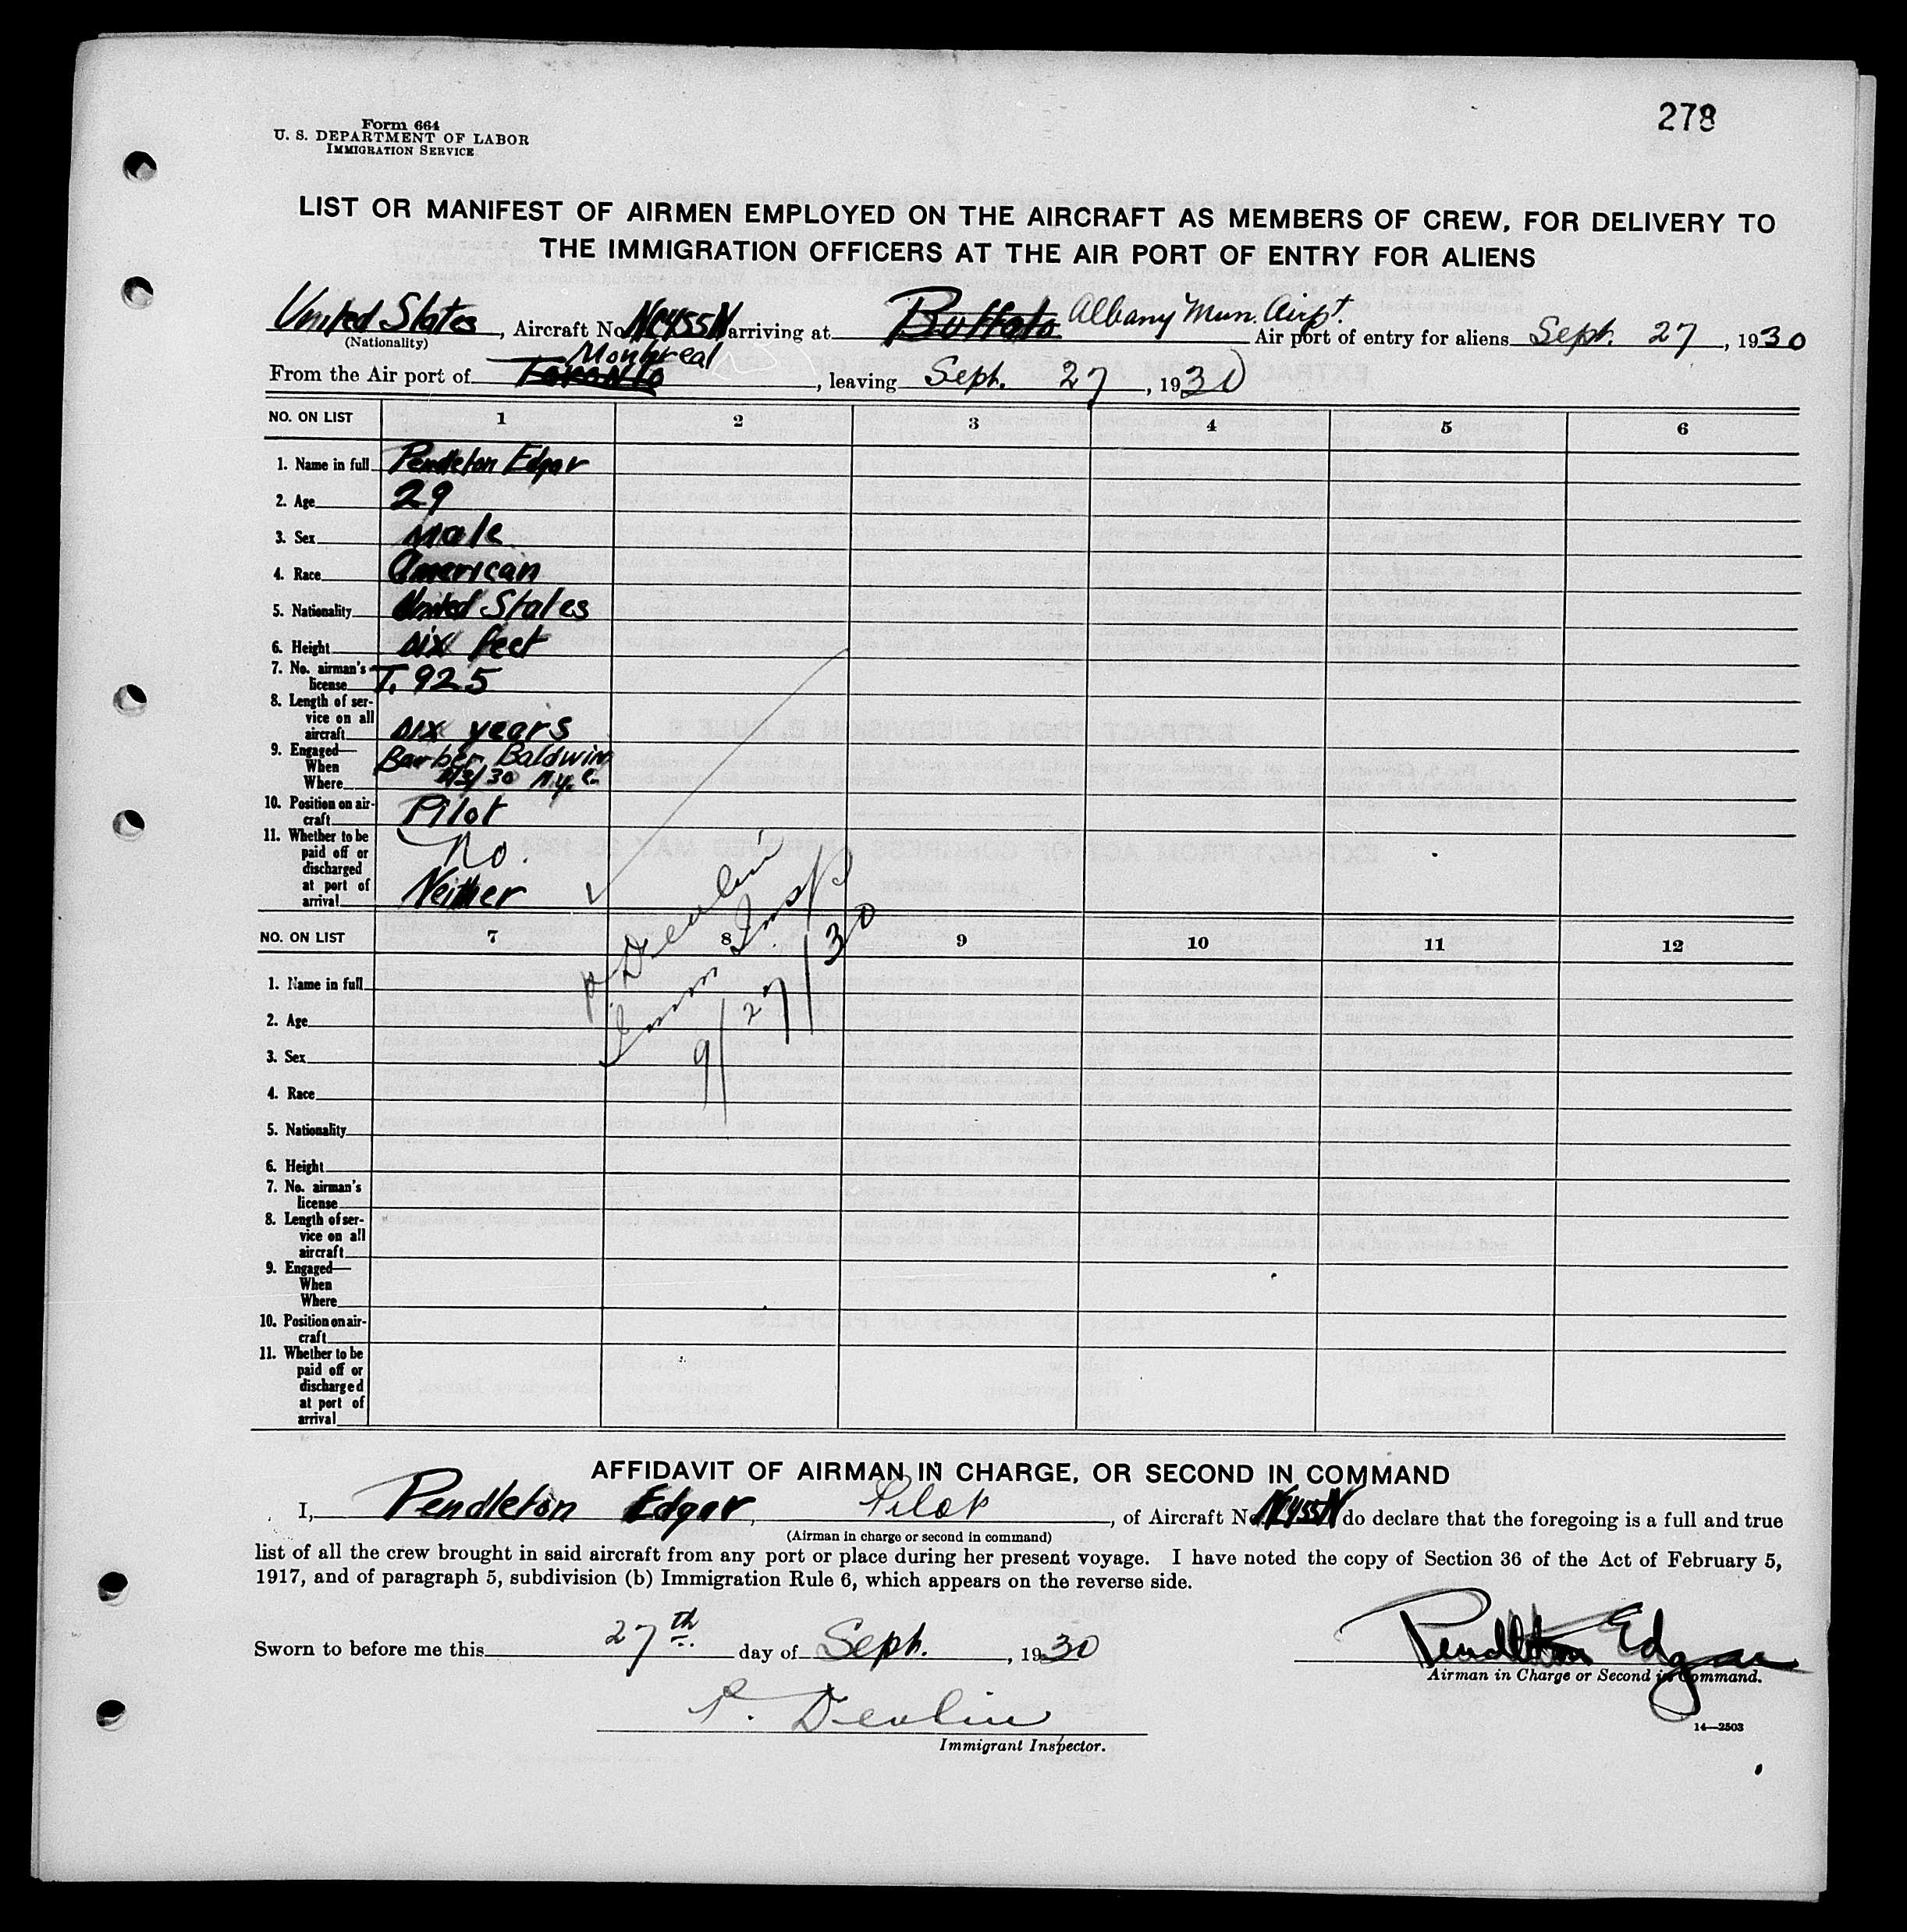 278
Form 664
U. S. DEPARTMENT OF LABOR
IMMIGRATION SERVICE
LIST OR MANIFEST OF AIRMEN EMPLOYED ON THE AIRCRAFT AS MEMBERS OF CREW, FOR DELIVERY TO
THE IMMIGRATION OFFICERS AT THE AIR PORT OF ENTRY FOR ALIENS
United States, Aircraft No. NC455N arriving at Buffalo Albany Mun. Airpt. Air port of entry for aliens Sept. 27, 1930
(Nationality)
Montreal
From the Air port of Toronto, leaving Sept. 27, 1930
NO. ON LIST 1 2 3 4 5 6
1. Name in full Pendleton Edgar
2. Age 29
3. Sex male
4. Race American
5. Nationality United States
6. Height six feet
7. No. airman's
license T. 925
8. Length of ser-
vice on all
aircraft six years
9. Engaged— Barber, Baldwin
When
Where /30 N.Y.C.
10. Position on air-
craft Pilot
11. Whether to be
paid off or
discharged
at port of
arrival
No.
Neither
P. Devlin
Imm Insp
9/27/30
NO. ON LIST 7 8 9 10 11 12
1. Name in full
2. Age
3. Sex
4. Race
5. Nationality
6. Height
7. No. airman's
license
8. Length of ser-
vice on all
aircraft
9. Engaged—
When
Where
10. Position on air-
craft
11. Whether to be
paid off or
discharged
at port of
arrival
AFFIDAVIT OF AIRMAN IN CHARGE, OR SECOND IN COMMAND
I, Pendleton Edgar, Pilot, of Aircraft No. NC455N do declare that the foregoing is a full and true
(Airman in charge or second in command)
list of all the crew brought in said aircraft from any port or place during her present voyage. I have noted the copy of Section 36 of the Act of February 5,
1917, and of paragraph 5, subdivision (b) Immigration Rule 6, which appears on the reverse side.
Sworn to before me this 27th day of Sept., 1930
Pendleton Edgar
Airman in Charge or Second in Command.
P. Devlin
Immigrant Inspector.
14—2503